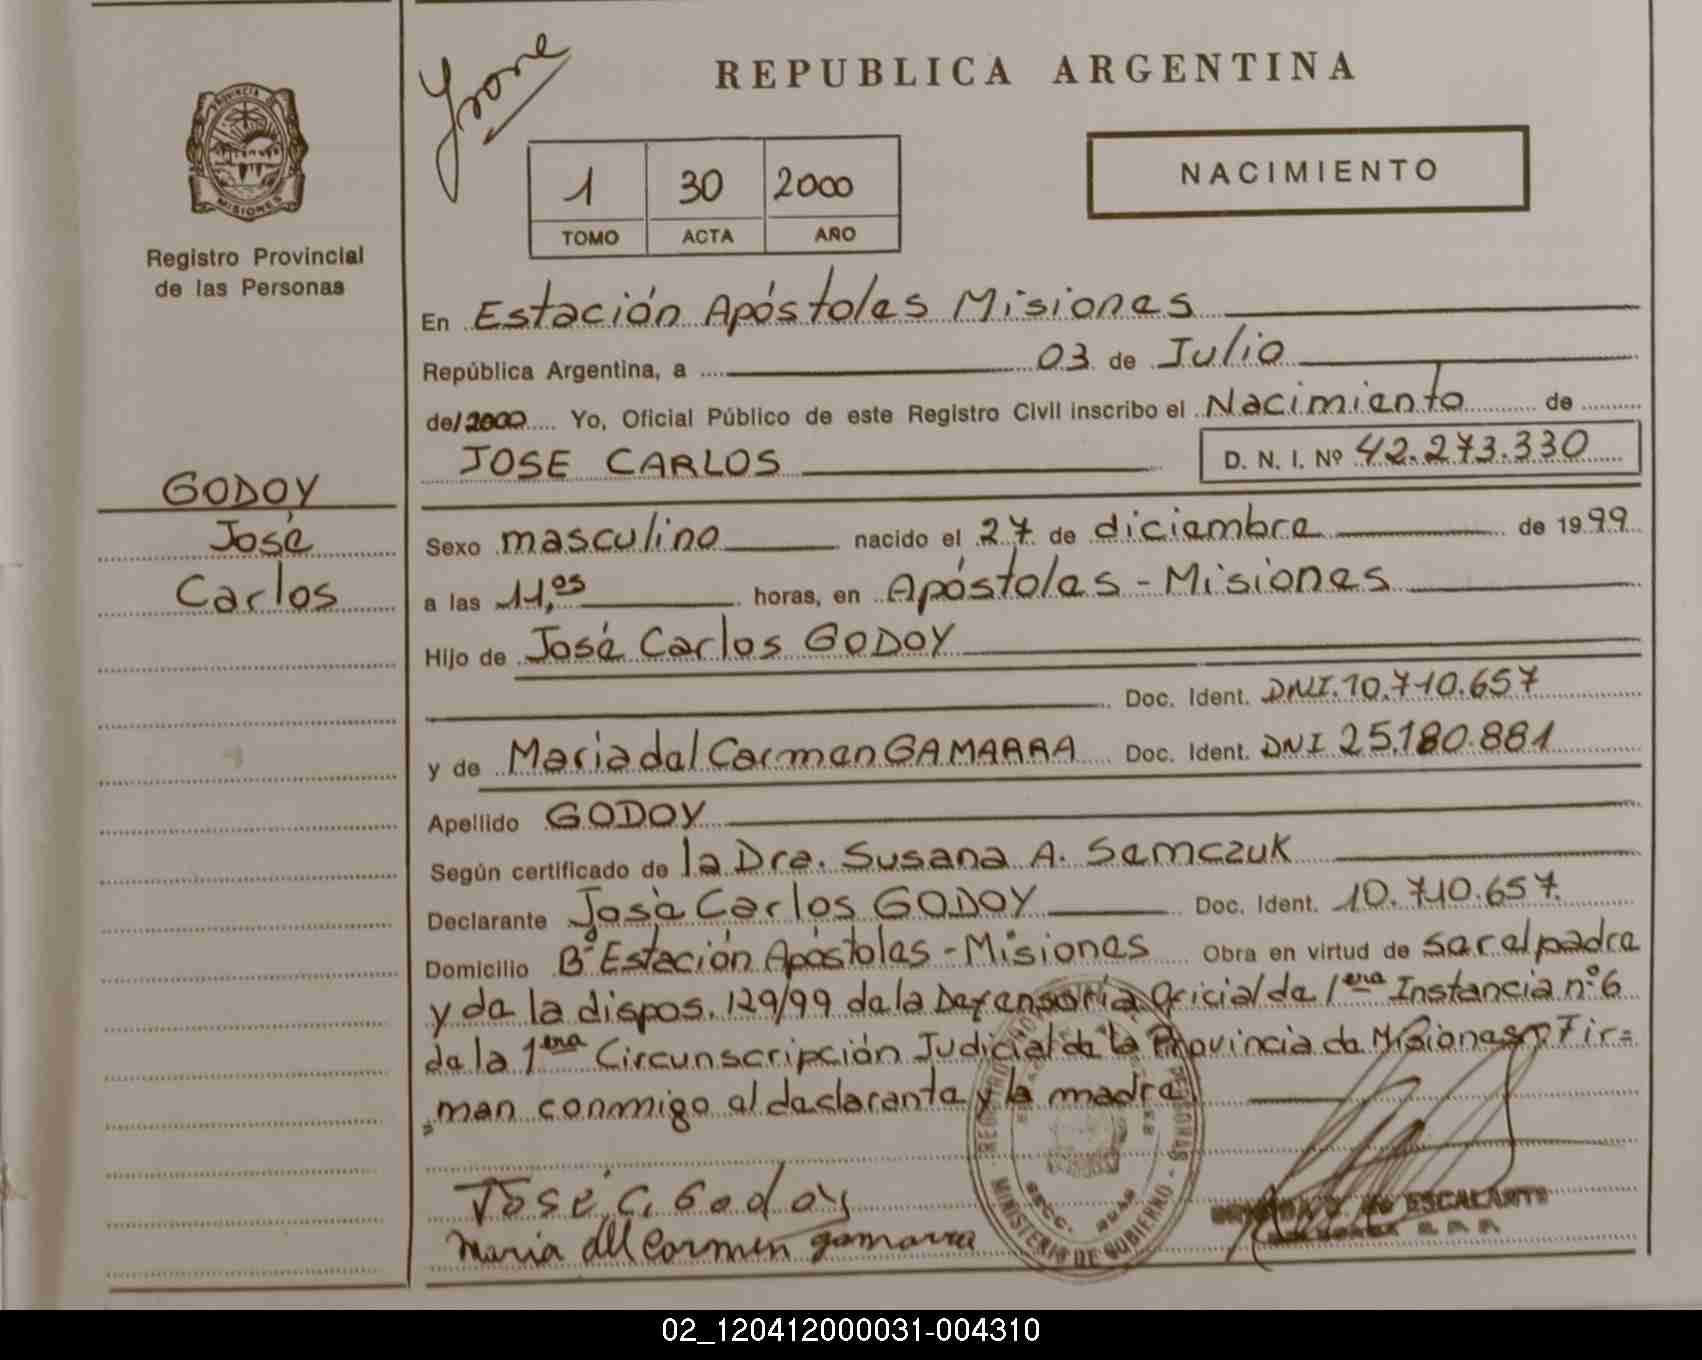 REPUBLICA ARGENTINA
PROVINCIA DE
MISIONES
Registro Provincial
de las Personas
1 30 2000
TOMO ACTA AÑO
NACIMIENTO
En Estación Apóstoles Misiones
República Argentina, a 03 de Julio
del 2000 Yo, Oficial Público de este Registro Civil inscribo el Nacimiento de
JOSE CARLOS D. N. I. Nº 42.273.330
GODOY
José
Carlos
Sexo masculino nacido el 27 de diciembre de 1999
a las 11,05 horas, en Apóstoles - Misiones
Hijo de José Carlos GODOY
Doc. Ident. DNI. 10.710.657
y de Maria del Carmen GAMARRA Doc. Ident. DNI 25.180.881
Apellido GODOY
Según certificado de la Dra. Susana A. Semczuk
Declarante José Carlos GODOY Doc. Ident. 10.710.657.
Domicilio Bº Estación Apóstoles - Misiones Obra en virtud de ser el padre
y de la dispos. 129/99 de la Defensoría Oficial de 1era Instancia nº 6
de la 1era Circunscripción Judicial de la Provincia de Misiones. Fir=
=man conmigo el declarante y la madre
José C. Godoy
Maria del Carmen gamarra
MINISTERIO DE GOBIERNO
ESCALANTE
02_120412000031-004310